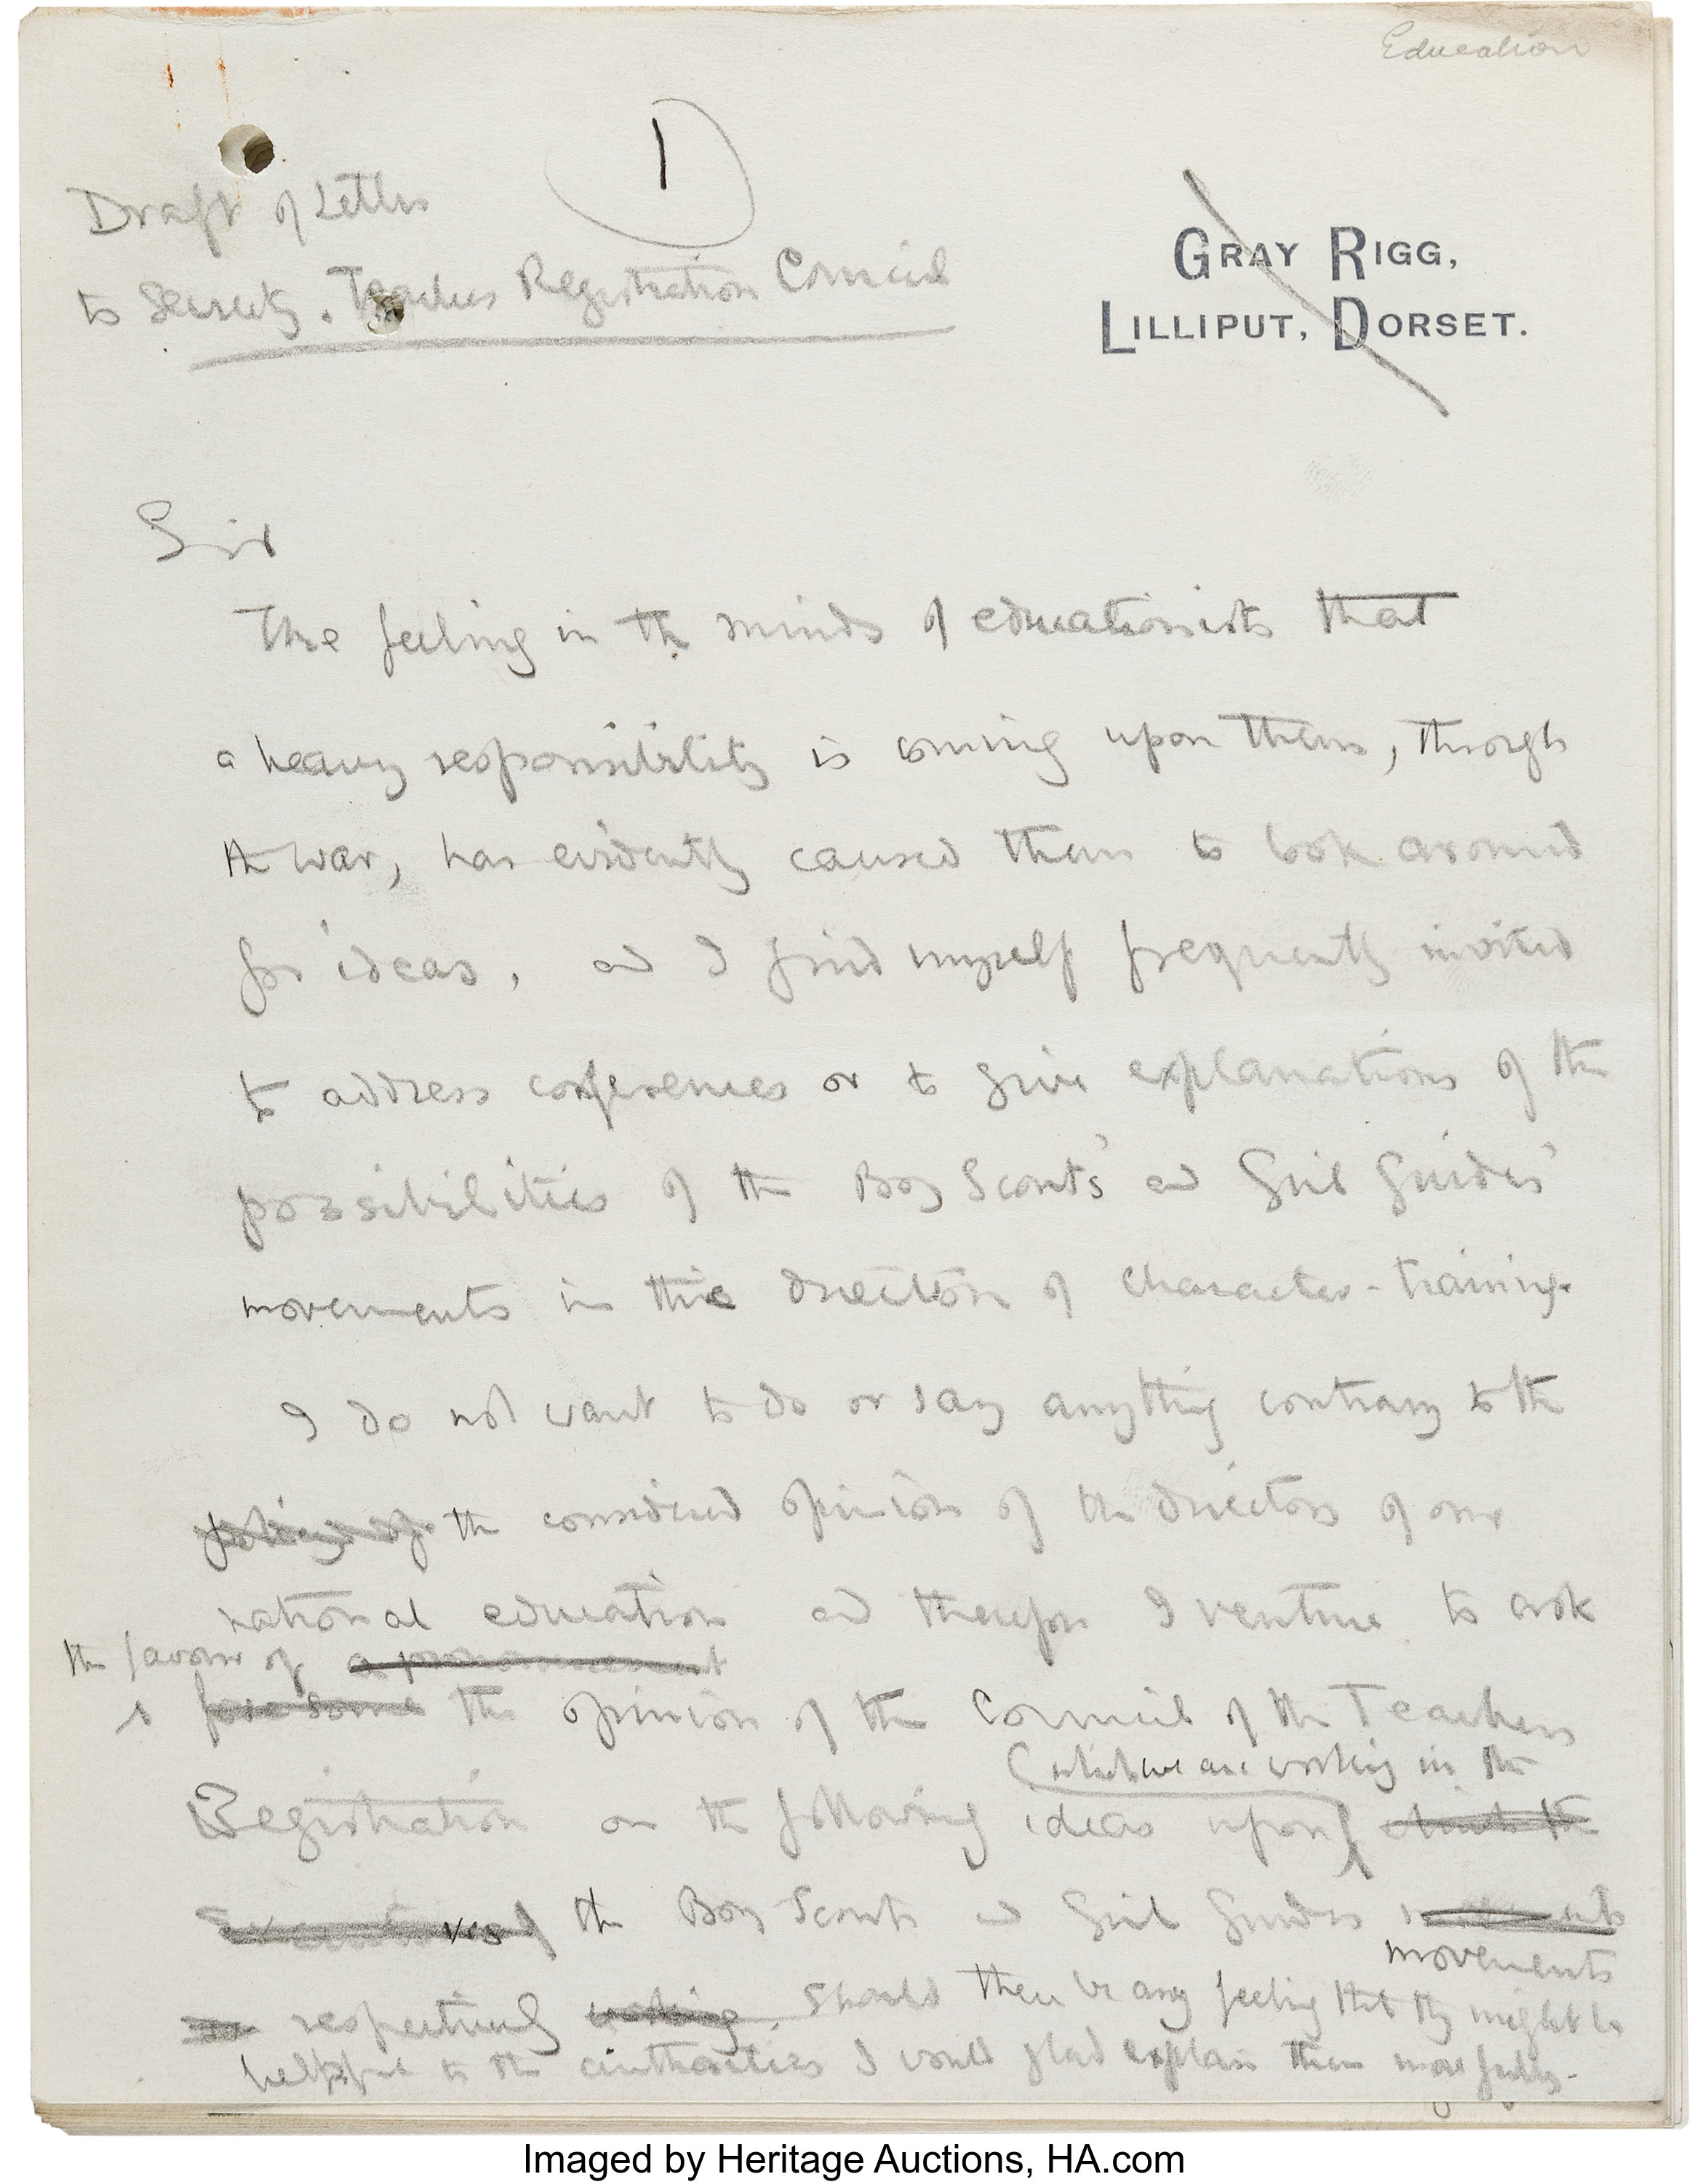 Education
1
Draft of Letter
to Secrety. Teachers Registration Council
GRAY RIGG,
LILLIPUT, DORSET.
Sir
The feeling in the minds of educationists that
a heavy responsibility is coming upon them, through
the war, has evidently caused them to look around
for ideas, and I find myself frequently invited
to address conferences or to give explanations of the
possibilities of the Boy Scouts' and Girl Guides'
movements in this direction of character-training.
I do not want to do or say anything contrary to the
policy of the considered opinion of the directors of our
national education and therefore I venture to ask
the favour of a pronouncement
for some the opinion of the Council of the Teachers
which we are working in the
Registration on the following ideas upon which the
the Boy Scouts and Girl Guides movements
movements
respectively working. Should there be any feeling that they might be
helpful to the authorities I would glad explain them more fully.
Imaged by Heritage Auctions, HA.com